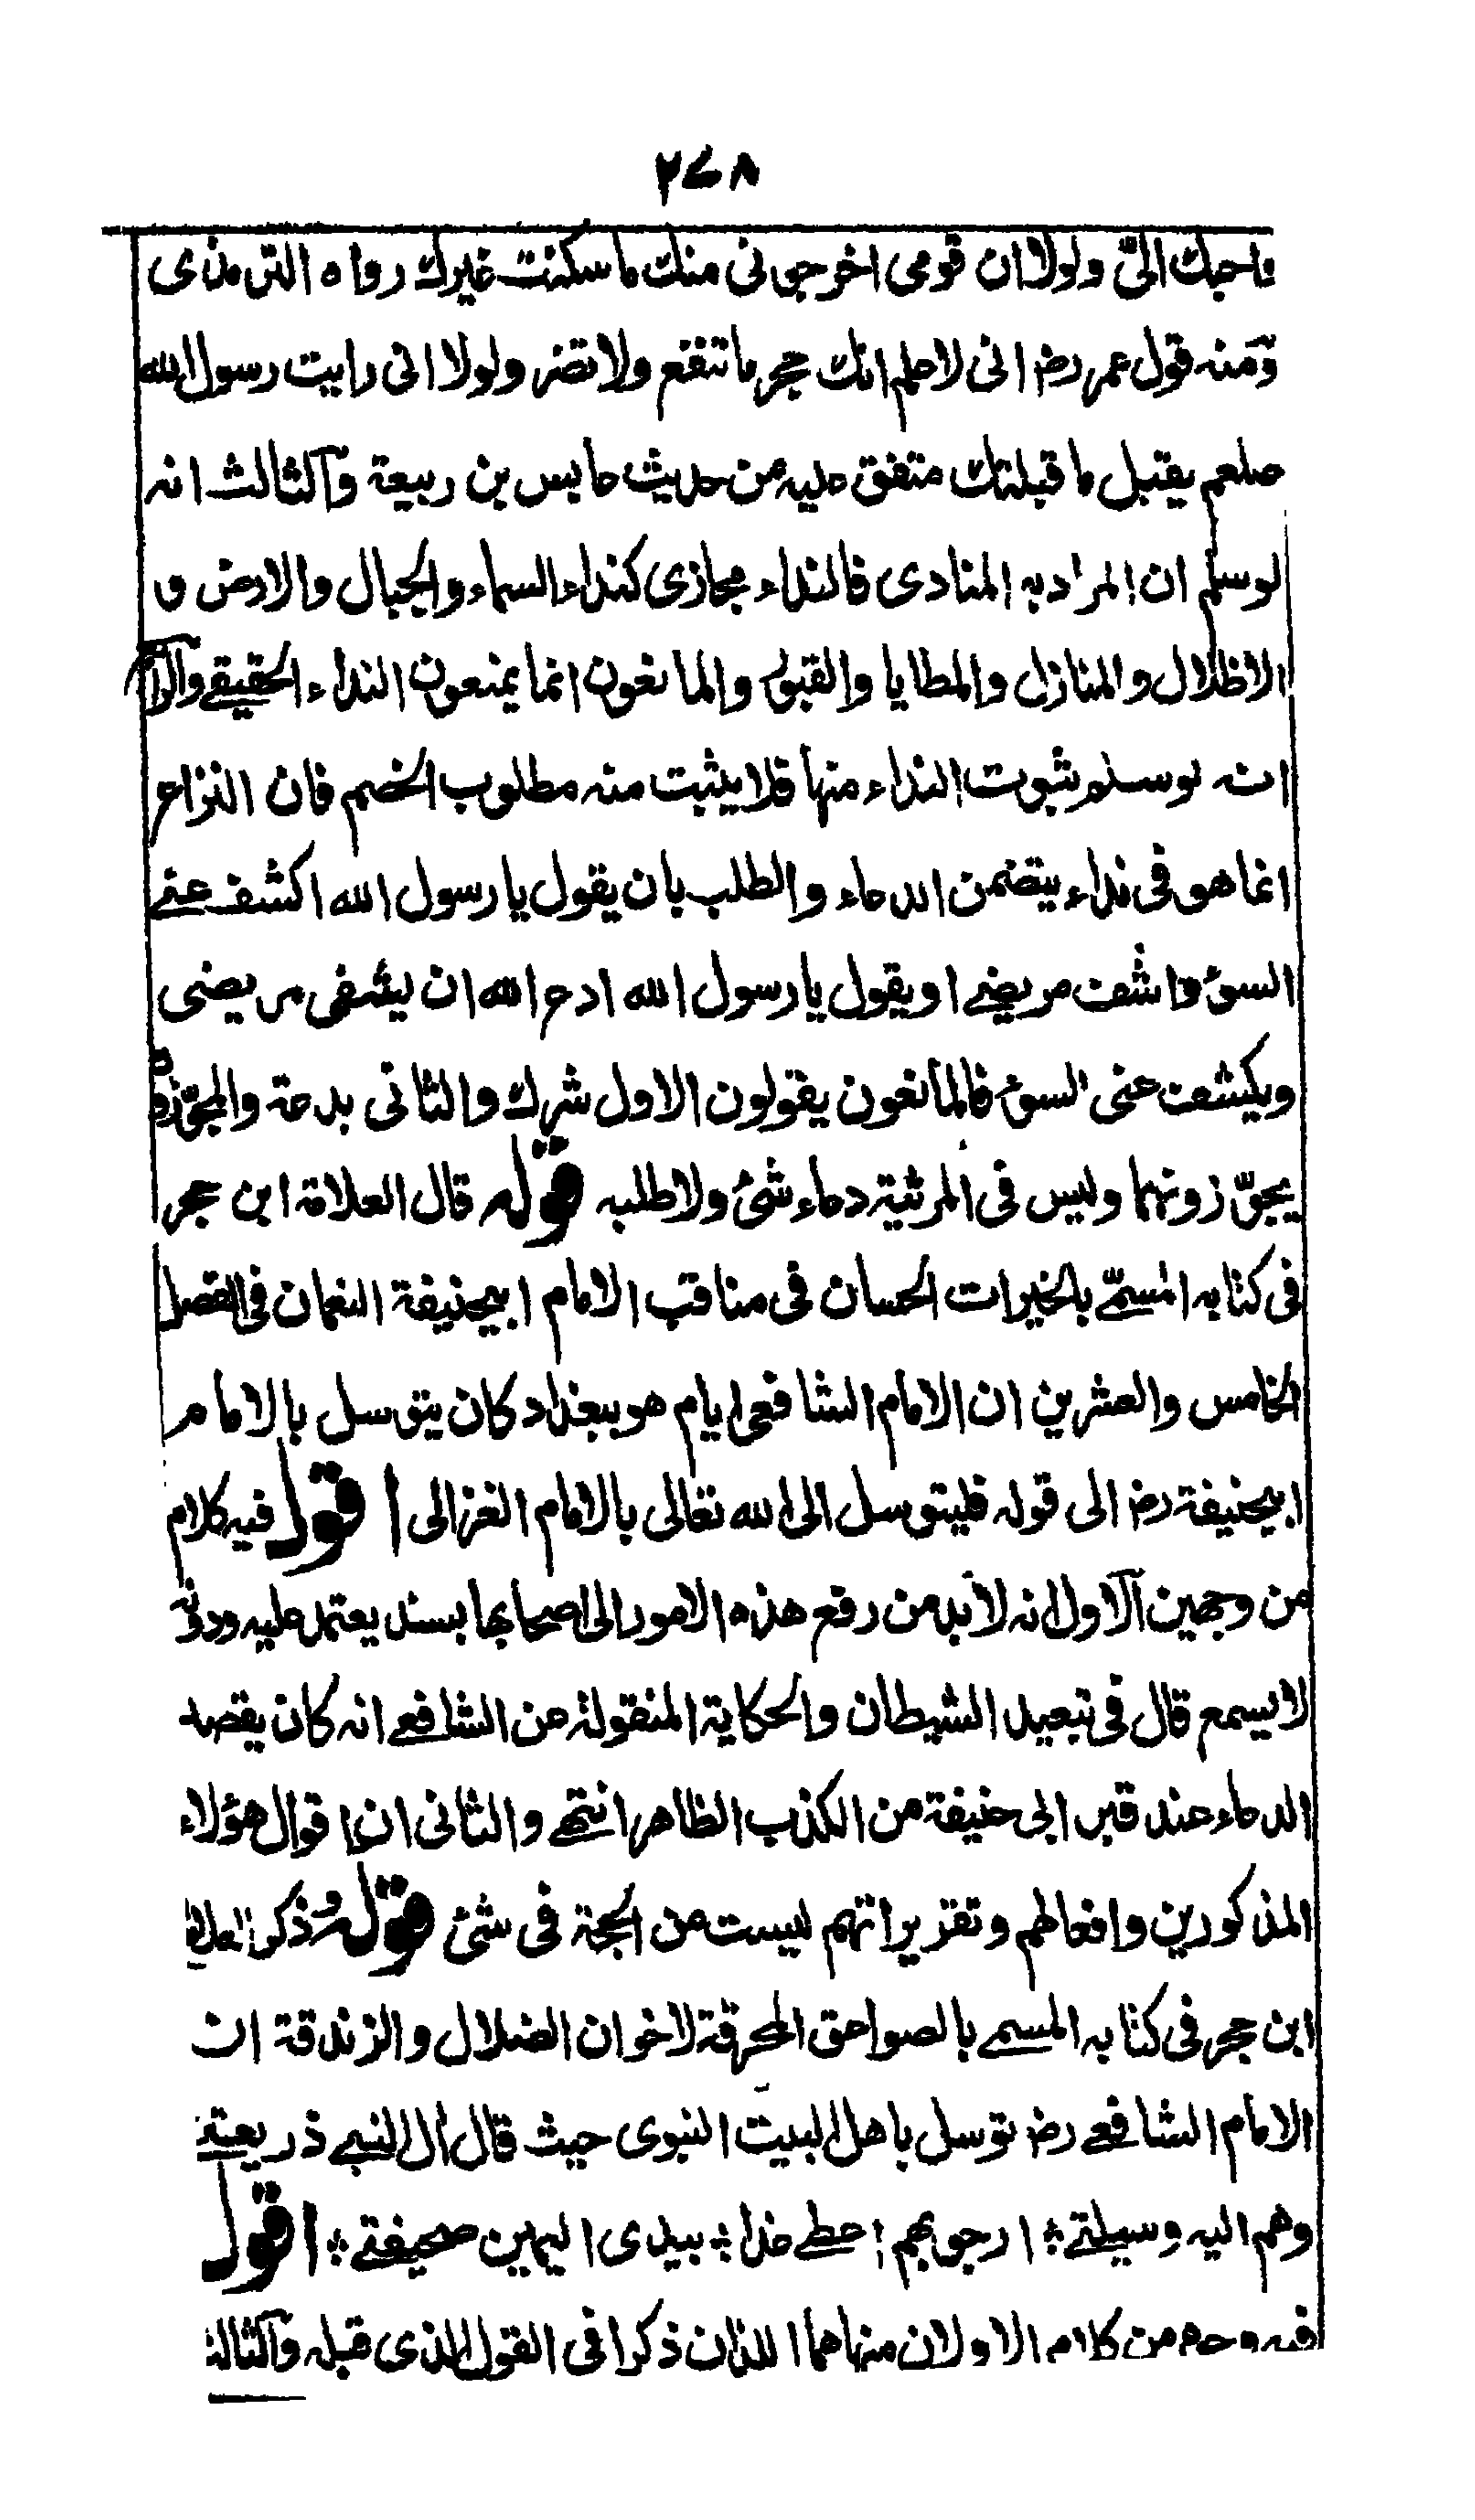 ۲۴۸
واحبك الىّ ولولا ان قومى اخرجونى منك ما سكنت غيرك رواه الترمذى
ومنه قول عمر رضـ انى لاعلم انك حجر ما تنفع ولا تضر ولولا انى رايت رسول الله
صلعم يقبل ما قبلتك متفق عليه من حديث عابس بن ربيعة والثالث انه
لو سلم ان المراد به المنادى فالنداء مجازى كنداء السماء والجبال والارض و
الاظلال والمنازل والمطايا والقبور والمانعون انما يمنعون النداء الحقيقے والرابع
انه لو سلم ثبوت النداء منها فلا يثبت منه مطلوب الخصم فان النزاع
انما هو فى نداء يتضمن الدعاء والطلب بان يقول يا رسول الله اكشف عنے
السوء واشف مريضے او يقول يا رسول الله ادع الله ان يشفى مريضى
ويكشف عنى السوء فالمانعون يقولون الاول شرك والثانى بدعة والمجوّزون
يجوّزونهما وليس فى المرثية دعاء شئ ولا طلبه قوله قال العلامة ابن حجر
فى كتابه المسمّے بالخيرات الحسان فى مناقب الامام ابيحنيفة النعمان فى الفصل
الخامس والعشرين ان الامام الشافعى ايام هو ببغداد كان يتوسل بالامام
ابيحنيفة رضـ الى قوله فليتوسل الى الله تعالى بالامام الغزالى اقول فيه كلام
من وجهين الاول انه لا بد من رفع هذه الامور الى اصحابها بسند يعتمد عليه ودونه
لا يسمع قال فى تبعيد الشيطان والحكاية المنقولة عن الشافعے انه كان يقصد
الدعاء عند قبر ابى حنيفة من الكذب الظاهر انتهے والثانى ان اقوال هؤلاء
المذكورين وافعالهم وتقريراتهم ليست من الحجة فى شئ قوله وذكر العلامة
ابن حجر فى كتابه المسمے بالصواعق المحرقة لاخوان الضلال والزندقة ان
الامام الشافعے رضـ توسل باهل البيت النبوى حيث قال ال النبے ذريعتے
وهم اليه وسيلتے ؛ ارجو بهم اعطے غدا ؛ بيدى اليمين صحيفتے ؛ اقول
فيه وجوه من كلام الاولان منها هما اللذان ذكرا فى القول الذى قبله والثالث